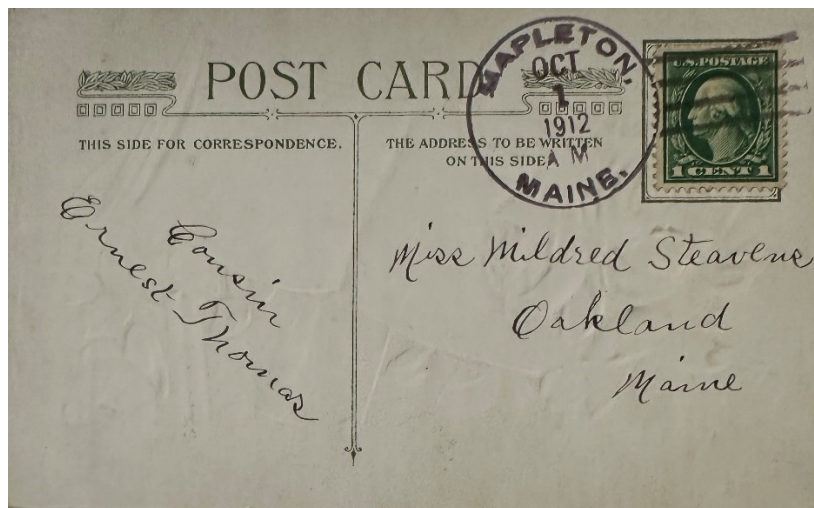 POST CARD.
MAPLETON,
OCT
1
1912
A M
MAINE.
U.S. POSTAGE
1 CENT 1
THIS SIDE FOR CORRESPONDENCE.
THE ADDRESS TO BE WRITTEN
ON THIS SIDE
Cousin
Ernest Thomas
Miss Mildred Steavens
Oakland
Maine